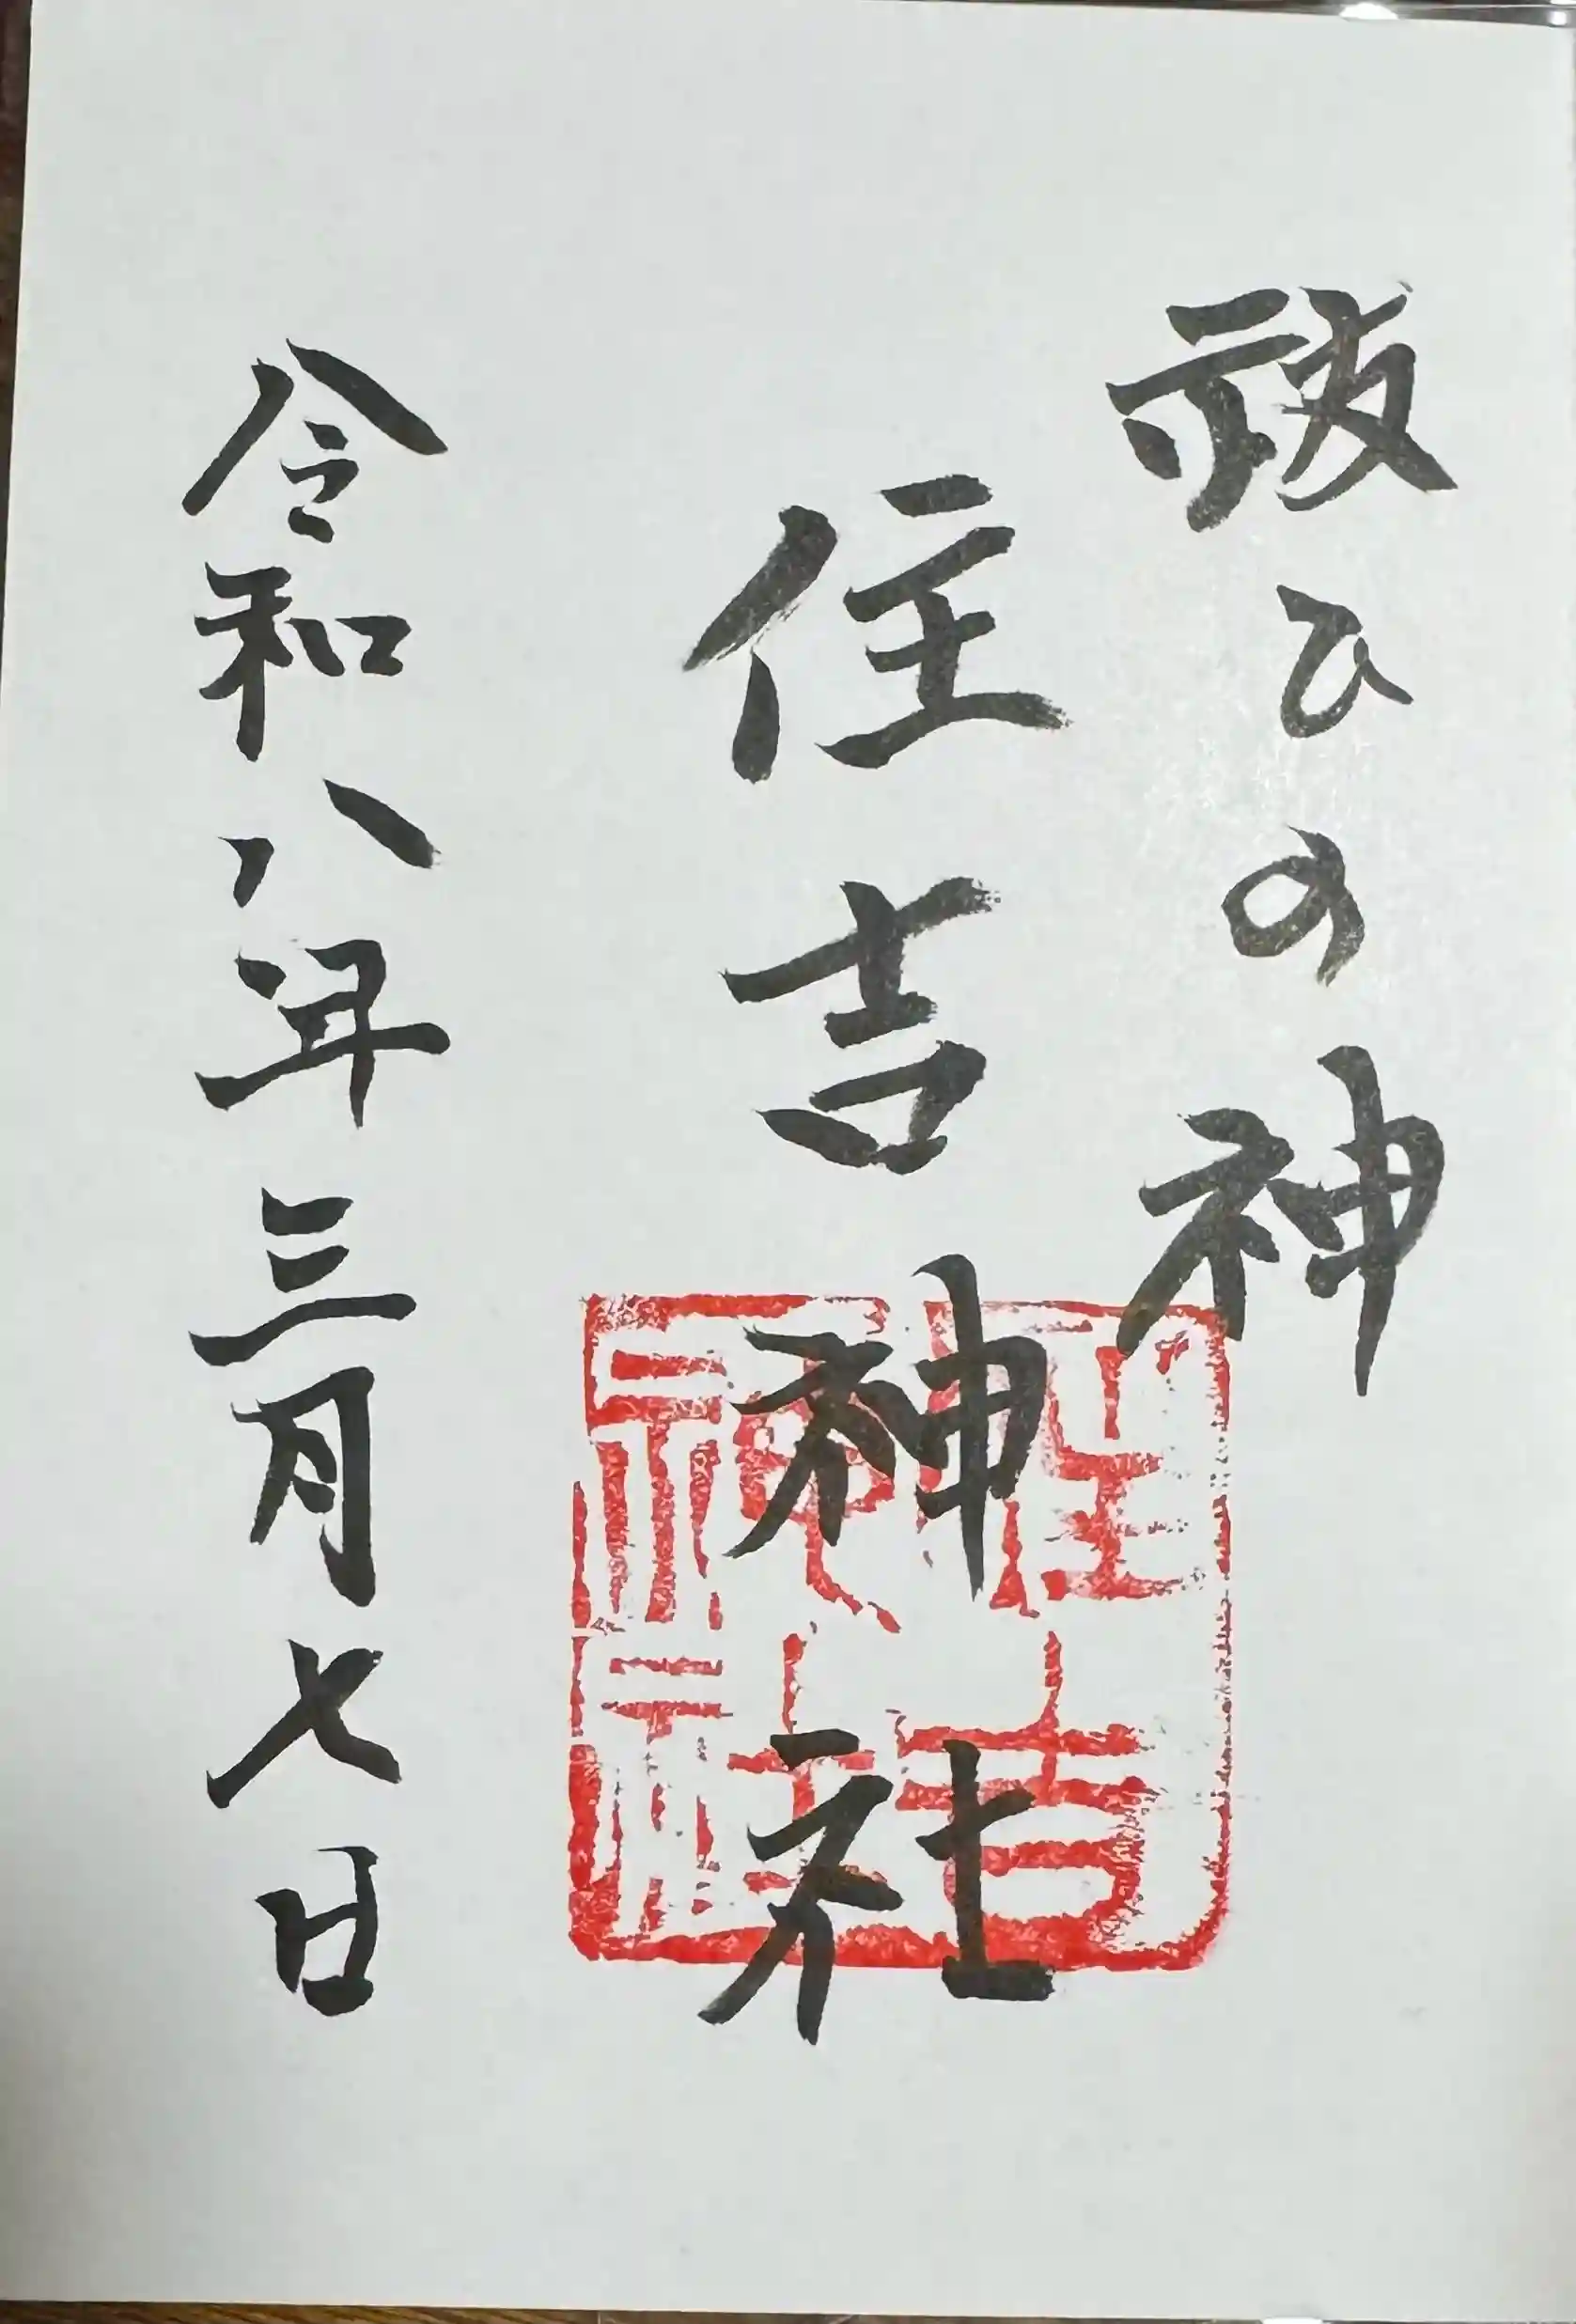 祓ひの神
住吉神社
令和八年三月七日
住吉
神社